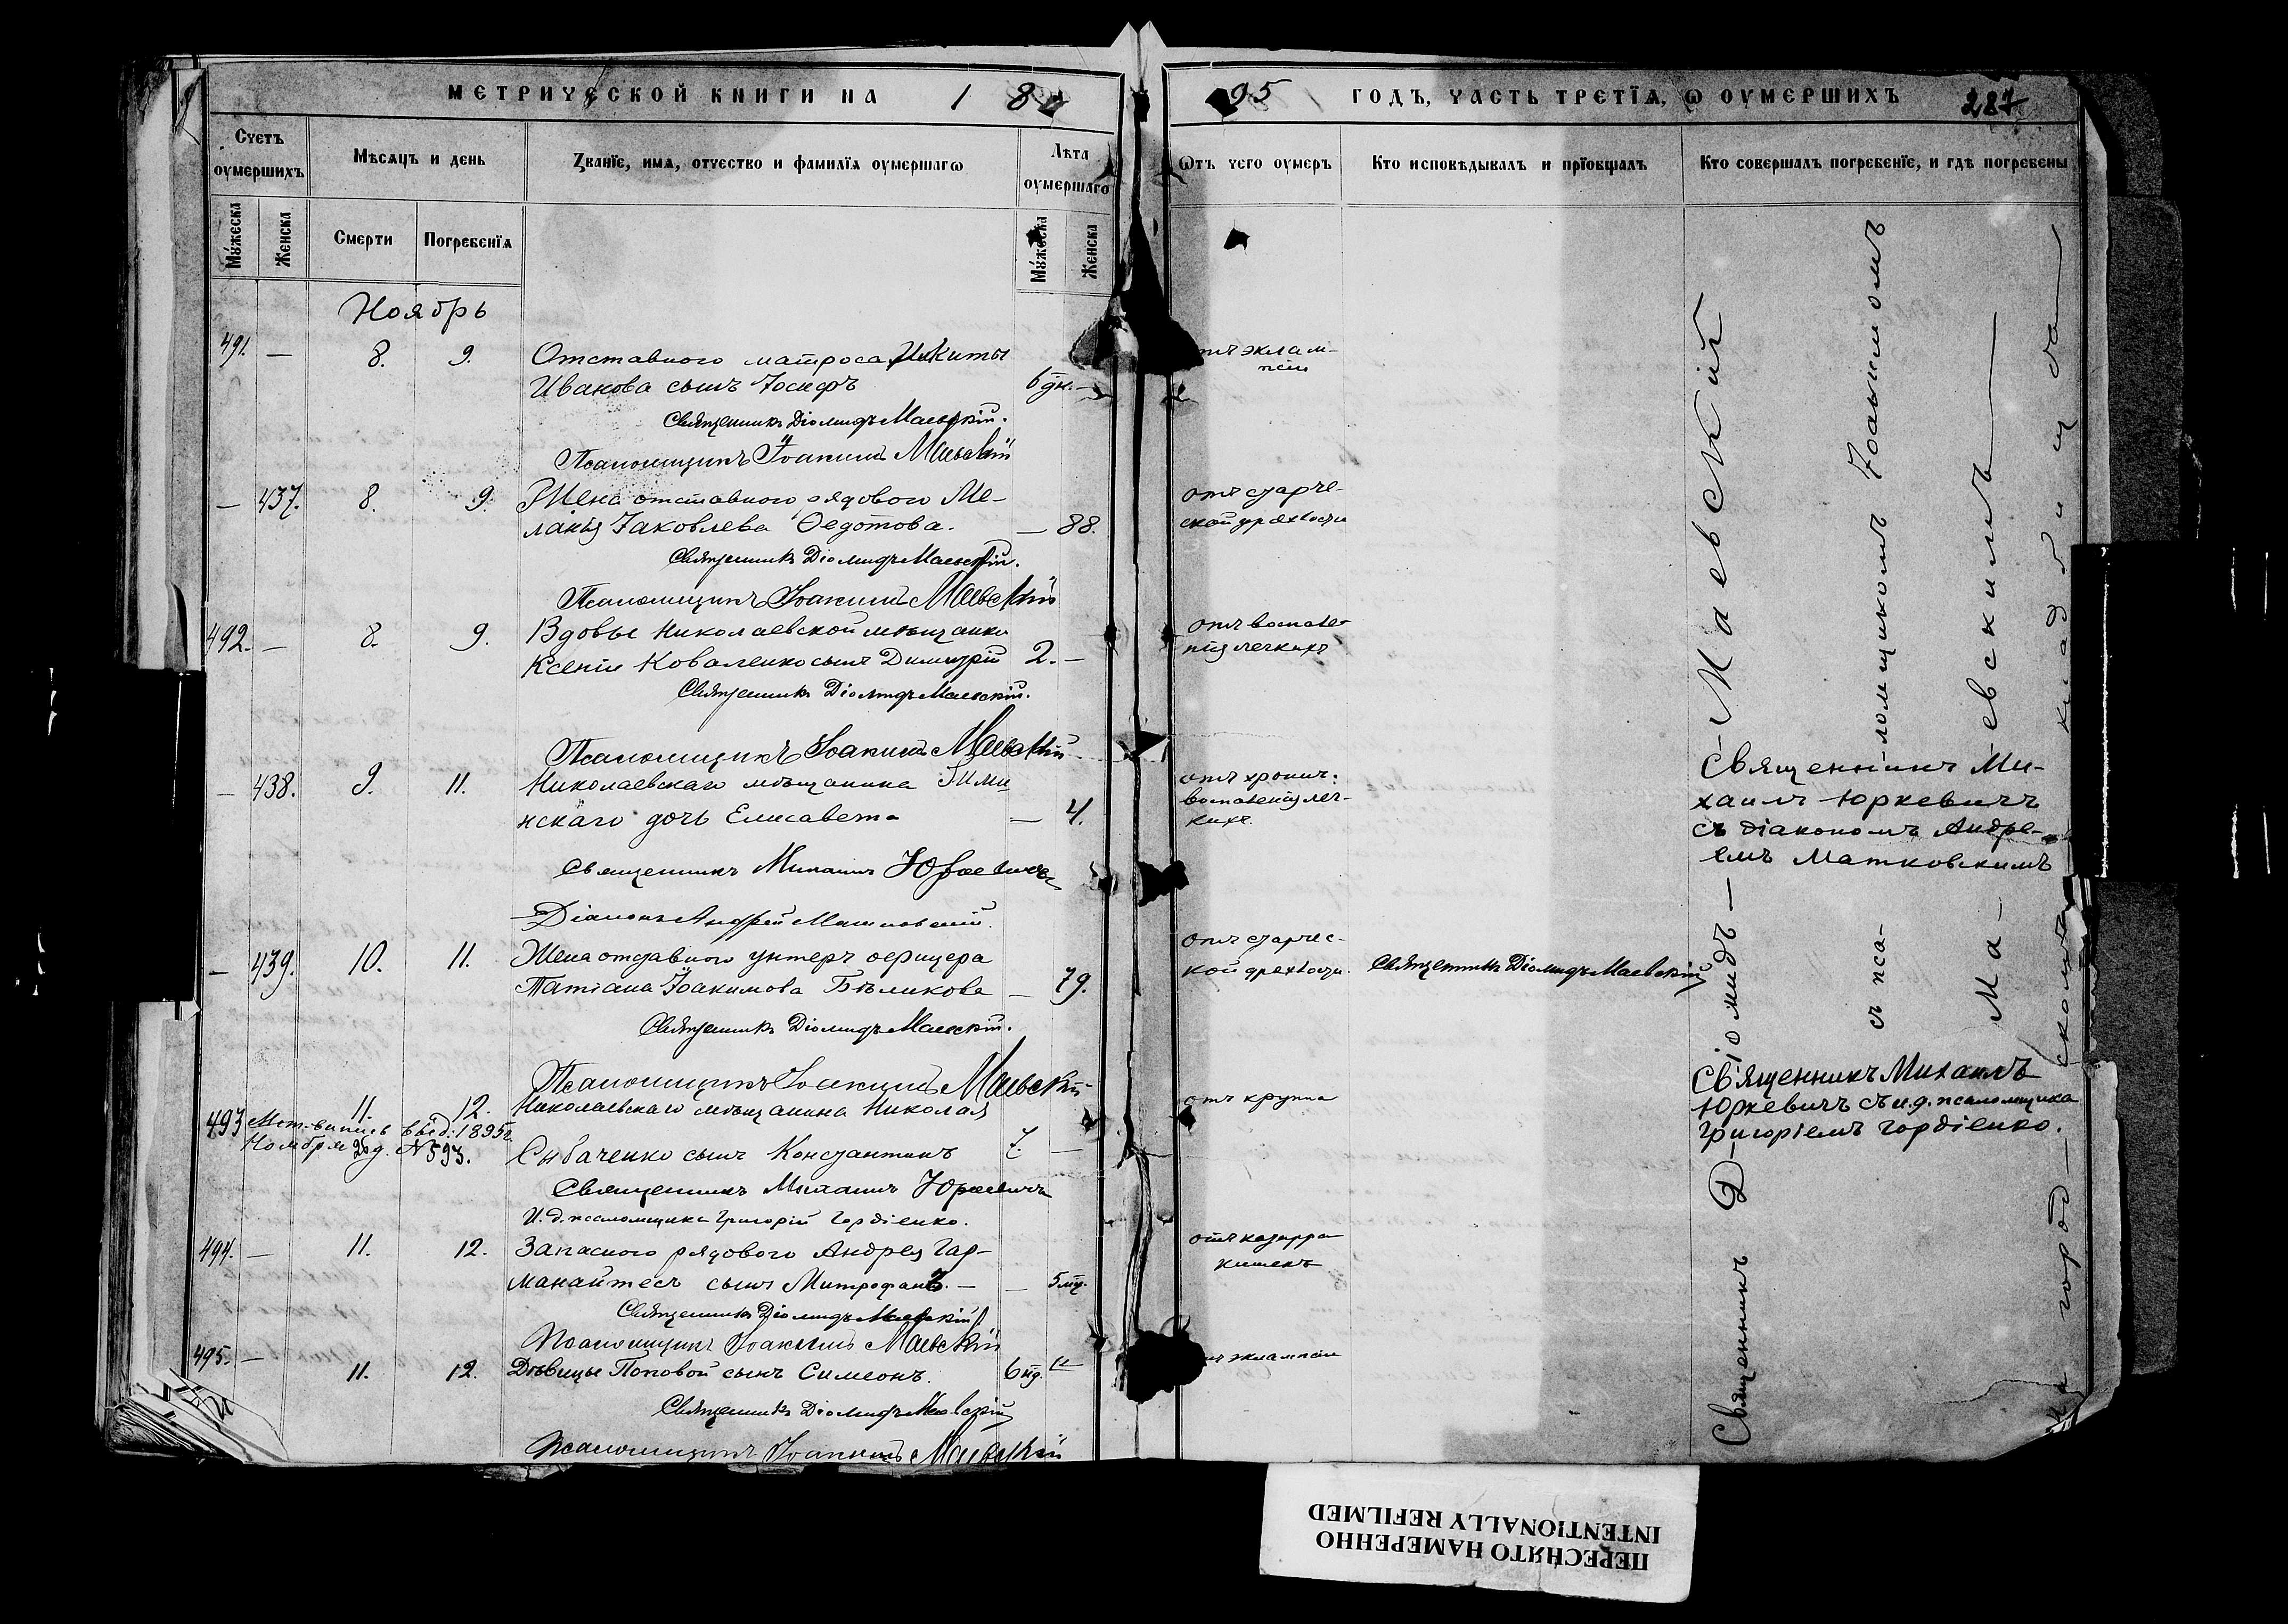 МЕТРИЧЕСКОЙ КНИГИ НА 1895 ГОДЪ, ЧАСТЬ ТРЕТІѦ, Ѡ ОУМЕРШИХЪ 287
Счетъ оумершихъ
Мѣсѧцъ и день
Званїе, имѧ, отчество и фамилїѧ оумершагѡ
Лѣта оумершаго
Ѿтъ чего оумеръ
Кто исповѣдывалъ и прїобщалъ
Кто совершалъ погребенїе, и гдѣ погребены
Мужеска
Женска
Смерти
Погребенїѧ
Мужеска
Женска
Ноябрь
491. — 8. 9. Отставного матроса Никиты отъ эклам-
Иванова сынъ Іосифъ 6 дн. — псіи
Священникъ Діомидъ Маевскій.
Псаломщикъ Іоакимъ Маевскій
— 437. 8. 9. Жена отставного рядового Ме- отъ старче-
ланія Іаковлева Ѳедотова. — 88. ской дряхлости
Священникъ Діомидъ Маевскій.
Псаломщикъ Іоакимъ Маевскій
492. — 8. 9. Вдовы Николаевской мѣщанки отъ воспале-
Ксеніи Коваленко сынъ Димитрій 2. — нія легкихъ
Священникъ Діомидъ Маевскій.
Псаломщикъ Іоакимъ Маевскій
— 438. 9. 11. Николаевскаго мѣщанина отъ хронич.
воспаленія лег-
нскаго дочь Елисавета — 4. кихъ.
Священникъ Михаилъ Юркевичъ
Діаконъ Андрей Матковскій.
Священникъ Ми-
хаилъ Юркевичъ
съ діакономъ Андре-
емъ Матковскимъ
— 439. 10. 11. Жена отставного унтеръ офицера отъ старчес-
Татіана Іоакимова Бѣликова — 79. кой дряхлости. Священникъ Діомидъ Маевскій
Священникъ Діомидъ Маевскій.
Псаломщикъ Іоакимъ Маевскій
493 11. 12. Николаевскаго мѣщанина Николая отъ крупа
Мет. выпись выд. 1895 г.
Ноября 20 д. № 593.
Сыбаченко сынъ Константинъ 7. —
Священникъ Михаилъ Юркевичъ
И. д. псаломщика Григорій Гордіенко.
Священникъ Михаилъ
Юркевичъ съ и. д. псаломщика
Григоріемъ Гордіенко.
494. — 11. 12. Запасного рядового Андрея Гар- отъ катарра
манайтесъ сынъ Митрофанъ. — — 5 мц. кишекъ
Священникъ Діомидъ Маевскій
Псаломщикъ Іоакимъ Маевскій
495. — 11. 12. Дѣвицы Поповой сынъ Симеонъ. 6 нд. — отъ эклампсіи
Священникъ Діомидъ Маевскій
Псаломщикъ Іоакимъ Маевскій
Священникъ Діомидъ Маевскій
съ псаломщикомъ Іоакимомъ
Маевскимъ
на городскомъ кладбищѣ
ПЕРЕСНЯТО НАМЕРЕННО
INTENTIONALLY REFILMED